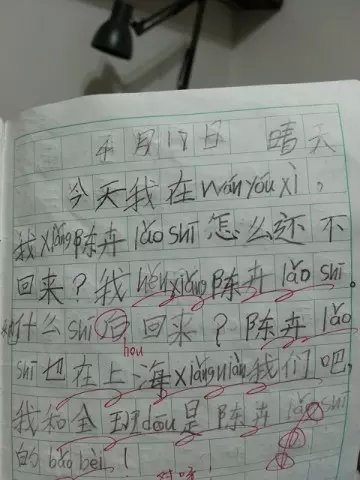 4月17日 晴天
今天我在wán yóu xì，
我xiǎng陈卉lǎo shī怎么还不
回来？我hěn xiǎng陈卉lǎo shī。
什么shí后回来？陈卉lǎo
hou
shī也在上海xiǎng niàn我们吧，
我和全班dōu是陈卉lǎo shī
的bǎo bèi！